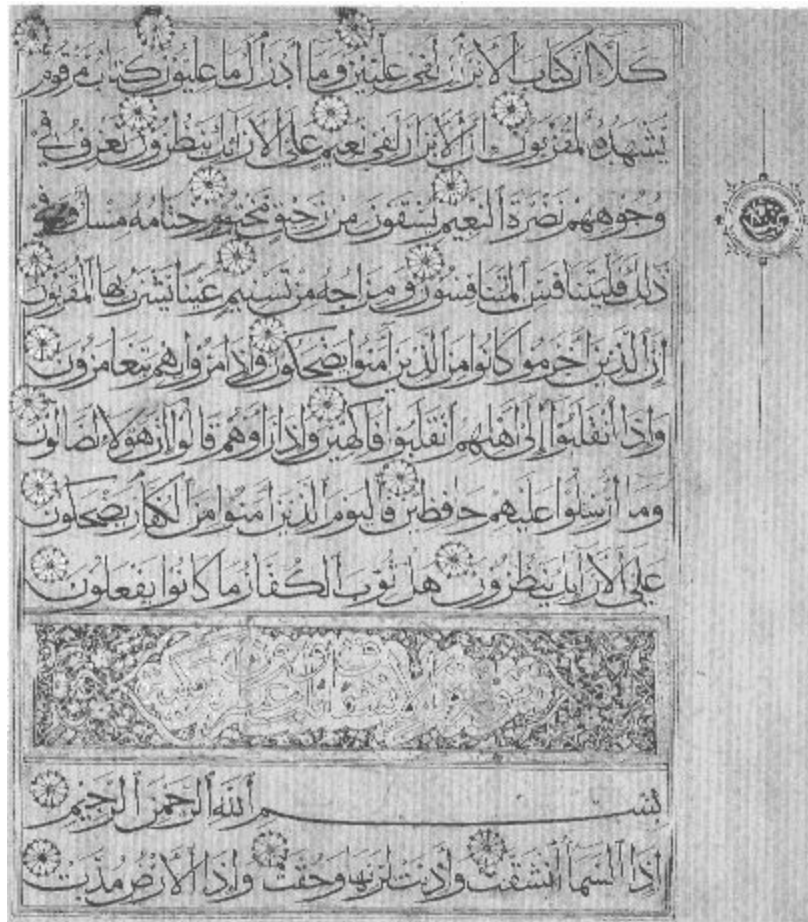 كلا ان كتاب الأبرار لفي عليين وما أدرىك ما عليون كتاب مرقوم
يشهده المقربون ان الأبرار لفي نعيم على الأرائك ينظرون تعرف في
وجوههم نضرة النعيم يسقون من رحيق مختوم ختامه مسك وفي
ذلك فليتنافس المتنافسون ومزاجه من تسنيم عينا يشرب بها المقربون
ان الذين اجرموا كانوا من الذين آمنوا يضحكون واذا مروا بهم يتغامزون
واذا انقلبوا إلى اهلهم انقلبوا فاكهين واذا راوهم قالوا ان هؤلاء لضالون
وما أرسلوا عليهم حافظين فاليوم الذين امنوا من الكفار يضحكون
على الأرائك ينظرون هل ثوب الكفار ما كانوا يفعلون
بسم الله الرحمن الرحيم
اذا السماء انشقت وأذنت لربها وحقت واذا الأرض مدت